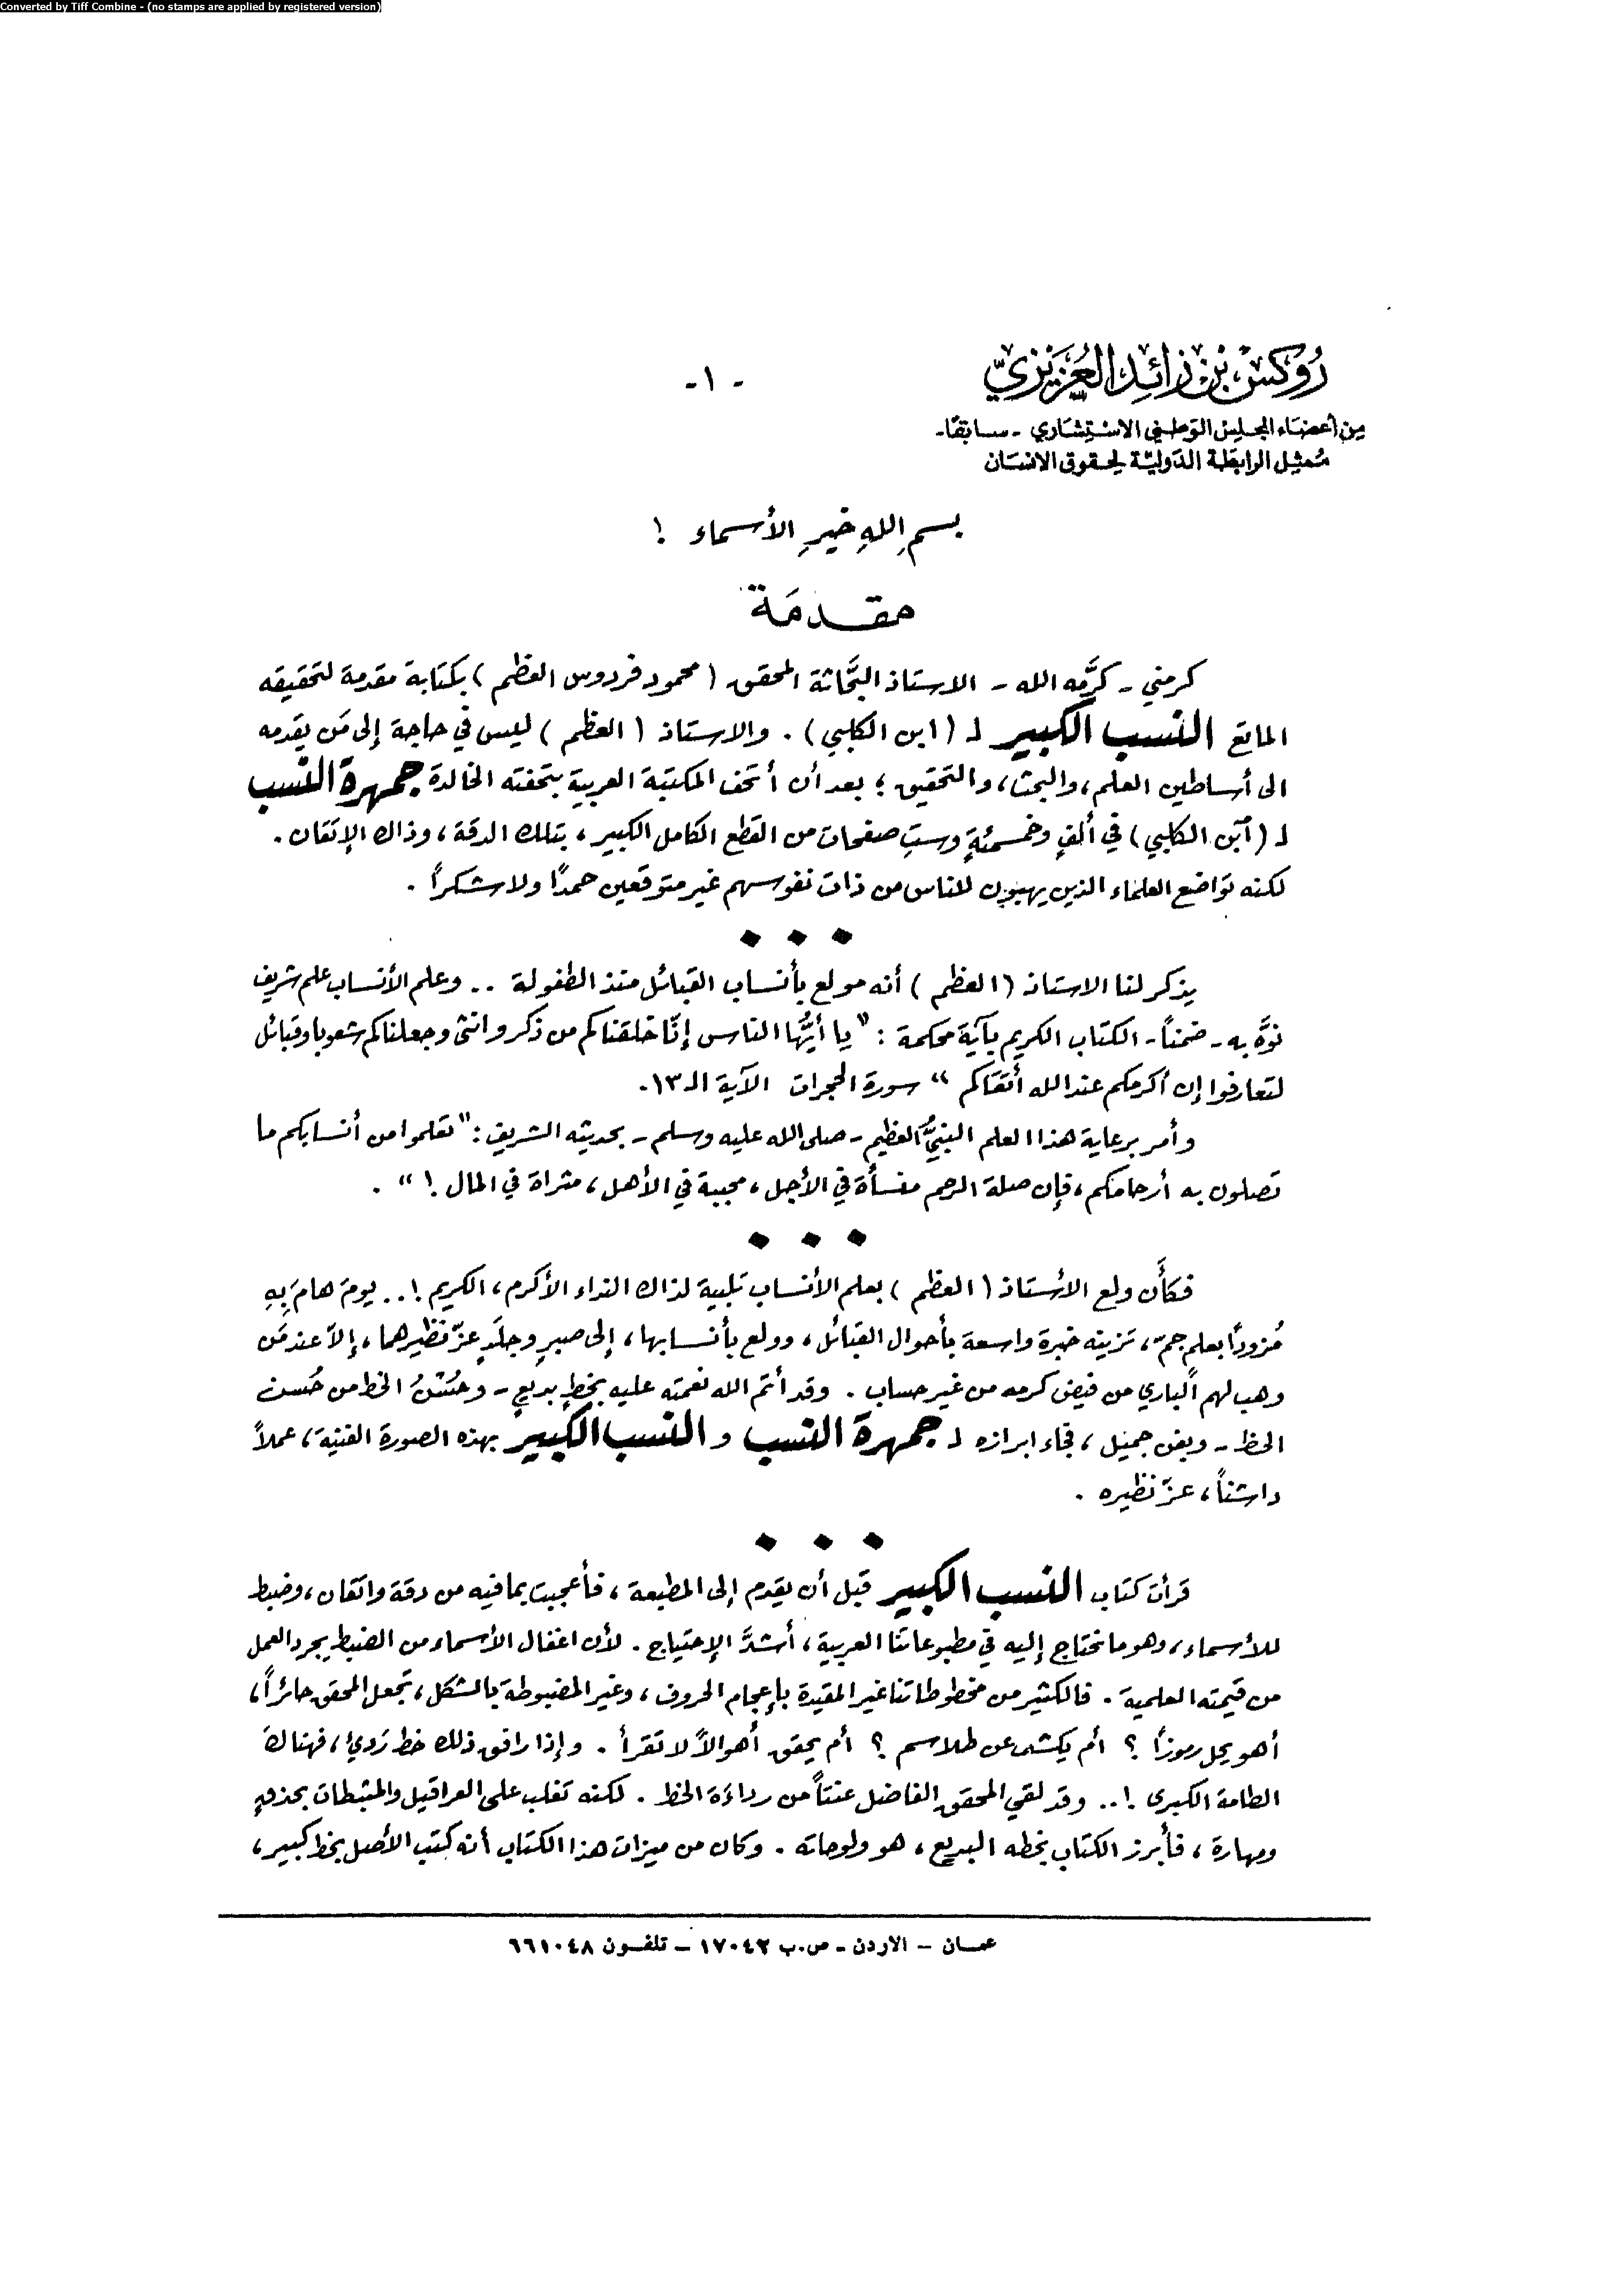 Converted by Tiff Combine - (no stamps are applied by registered version)
رُوكسْ بنْ زائِد العُزَيْزيّ
- ١ -
مِن أعضَاء المجلِس الوَطني الاسْتِشَاري - سَابقًا -
مُمثِل الرابطَة الدَوليَّة لحقوق الانسَان
بسمِ اللهِ خيرِ الأسماء !
مقدمَة
كرمني - كرَّمه الله - الاستاذ البحَّاثة المحقق ( محمود فردوس العظم ) بكتابة مقدمة لتحقيقه
الماتع النسب الكبير لـ ( ابن الكلبي ) . والاستاذ ( العظم ) ليس في حاجة إلى مَن يقدمه
الى أساطين العلم ، والبحث ، والتحقيق ؛ بعد أن أتحف المكتبة العربية بتحفته الخالدة جمهرة النسب
لـ ( ابن الكلبي ) في ألفٍ وخمسمئةٍ وستِ صفحات من القطع الكامل الكبير ، بتلك الدقة ، وذاك الإتقان .
لكنه تواضع العلماء الذين يهبون للناس من ذات نفوسهم غير متوقعين حمدًا ولا شكراً .
يذكر لنا الاستاذ ( العظم ) أنه مولع بأنساب القبائل منذ الطفولة .. وعلم الأنساب علم شريف
نوَّه به - ضمناً - الكتاب الكريم بآية محكمة : " يا أيُّها الناس إنّا خلقناكم من ذكر وانثى وجعلناكم شعوبا وقبائل
لتعارفوا إن أكرمكم عند الله أتقاكم " سورة الحجرات الآية الـ ١٣ .
وأمر برعاية هذا العلم النبيُّ العظيم - صلى الله عليه وسلم - بحديثه الشريف : " تعلموا من أنسابكم ما
تصلون به أرحامكم ، فإن صلة الرحم منسأة في الأجل ، محببة في الأهل ، مثراة في المال ! " .
فكأن ولع الأستاذ ( العظم ) بعلم الأنساب تلبية لذاك النداء الأكرم ، الكريم ! .. يومَ هامَ بِهِ
مُزودًا بعلم جمّ ، تزينه خبرة واسعة بأحوال القبائل ، وولع بأنسابها ، إلى صبرٍ وجلَدٍ عزّ نظيرهما ، إلاّ عند مَن
وهب لهم الباري من فيض كرمه من غير حساب . وقد أتم الله نعمته عليه بخطٍ بديعٍ - وحُسْنُ الخط من حُسن
الحظ - وبفن جميل ، فجاء ابرازه لـ جمهرة النسب و النسب الكبير بهذه الصورة الفنية ، عملاً
داشناً ، عزّ نظيره .
قرأت كتاب النسب الكبير قبل أن يقدم إلى المطبعة ، فأعجبت بما فيه من دقة واتقان ، وضبط
للأسماء ، وهو ما نحتاج إليه في مطبوعاتنا العربية ، أشدَّ الإحتياج . لأن اغفال الأسماء من الضبط يجرد العمل
من قيمته العلمية . فالكثير من مخطوطاتنا غير المقيدة بإعجام الحروف ، وغير المضبوطة بالشكل ، تجعل المحقق حائراً ،
أهو يحل رموزاً ؟ أم يكشف عن طلاسم ؟ أم يحقق أهوالاً لا تقرأ . وإذا رافق ذلك خط رَديئ ، فهناك
الطامة الكبرى ! .. وقد لقي المحقق الفاضل عنتاً من رداءَة الخط . لكنه تغلب على العراقيل والمثبطات بحذقٍ
ومهارة ، فأبرز الكتاب بخطه البديع ، هو ولوحاته . وكان من ميزات هذا الكتاب أنه كتب الأصل بخط كبير ،
عمسان - الاردن - ص.ب ١٧٠٤٢ - تلفسون ٦٦١٠٤٨